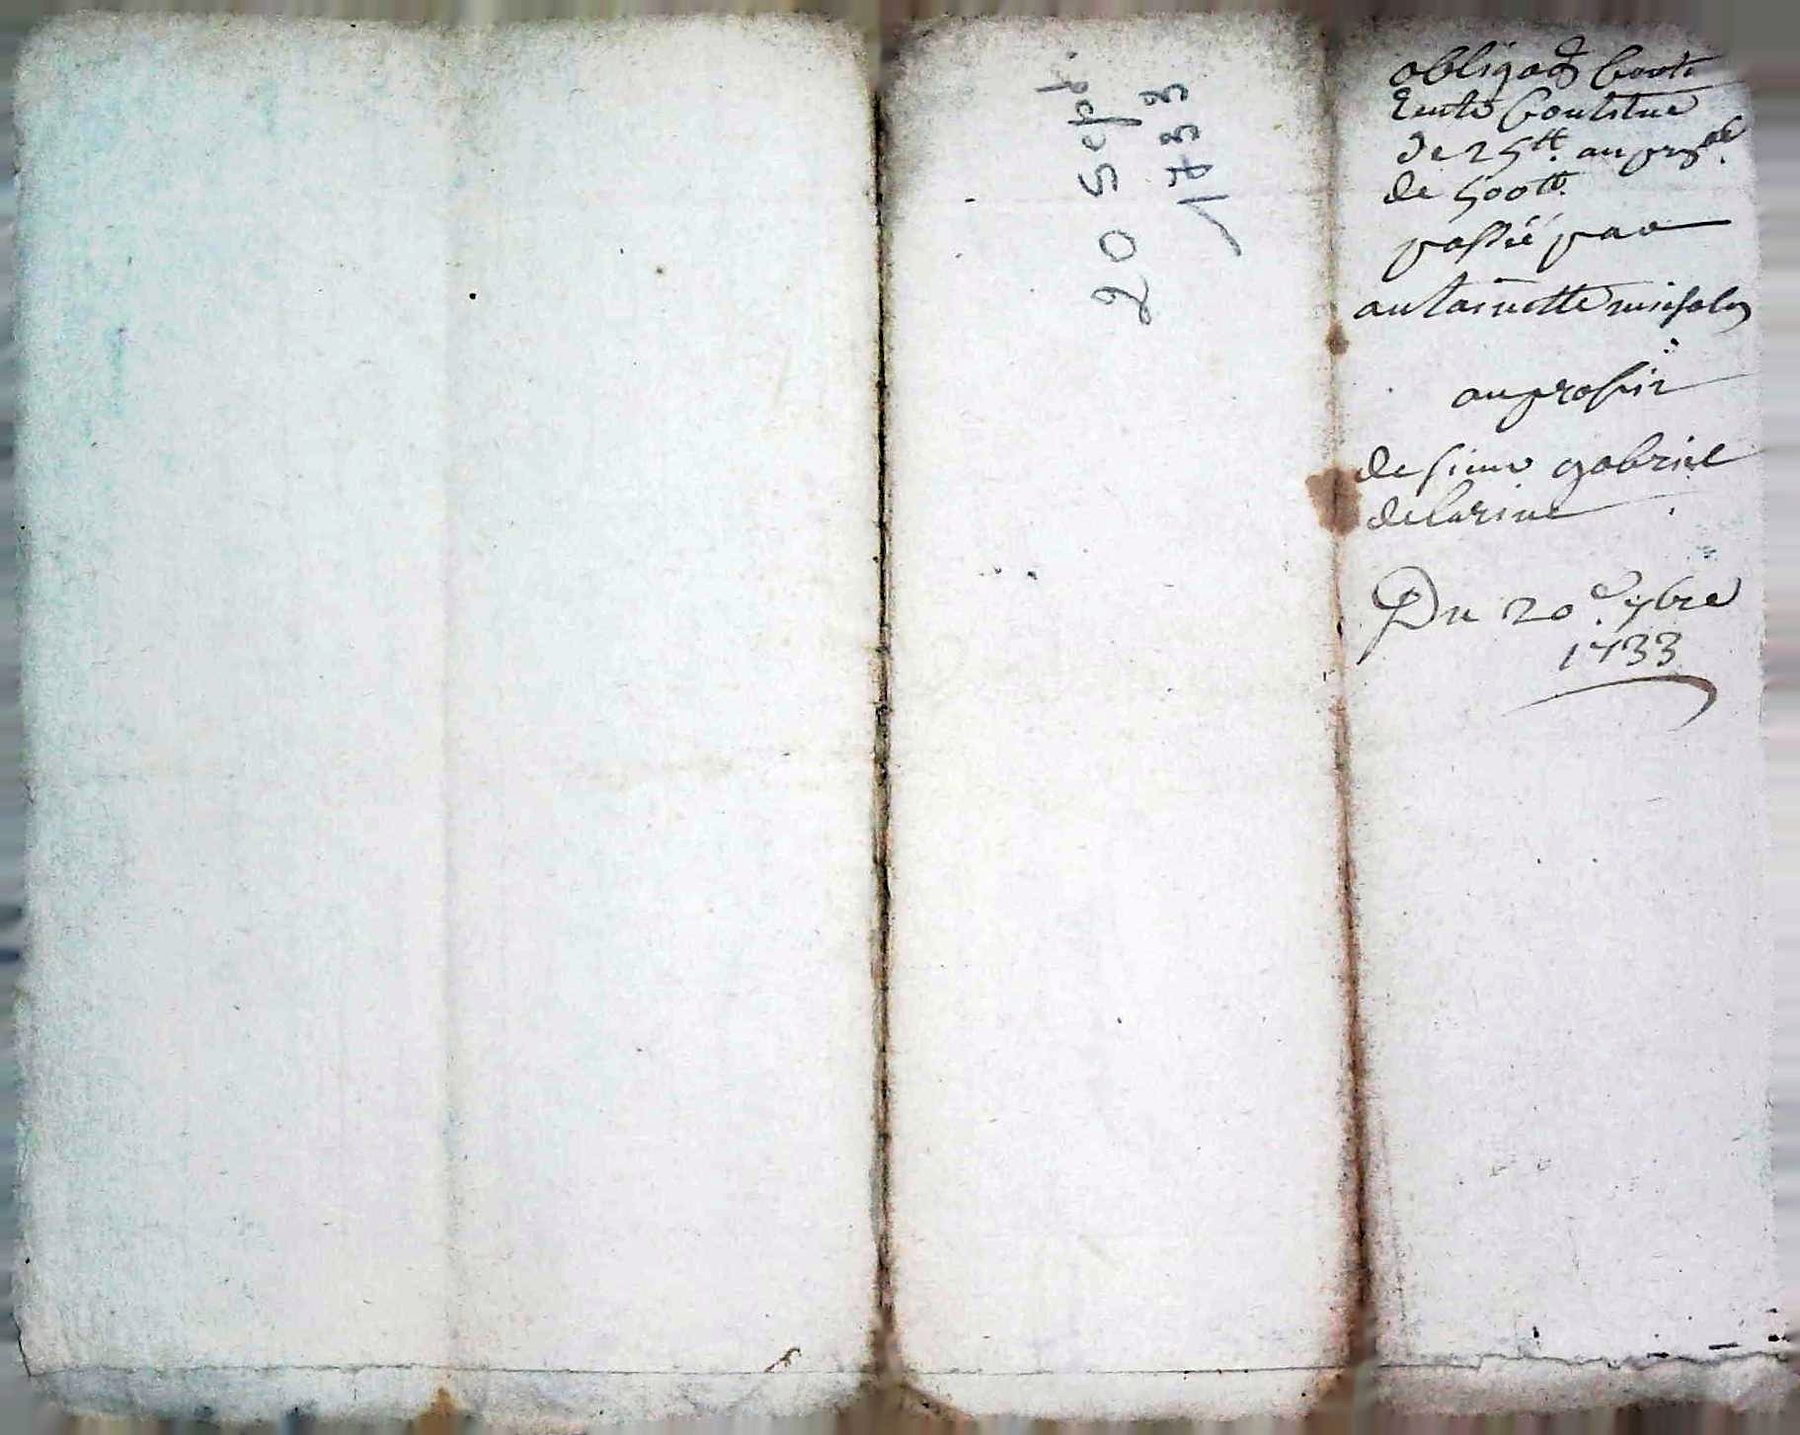 20 Sept.
1733
obligaõn Cont.
Rente Constitué
de 25tt. au prãl.
de 500tt.
passée par
antoinette
au profit
de sieur gabriel
delarine
Du 20e. 7bre
1733